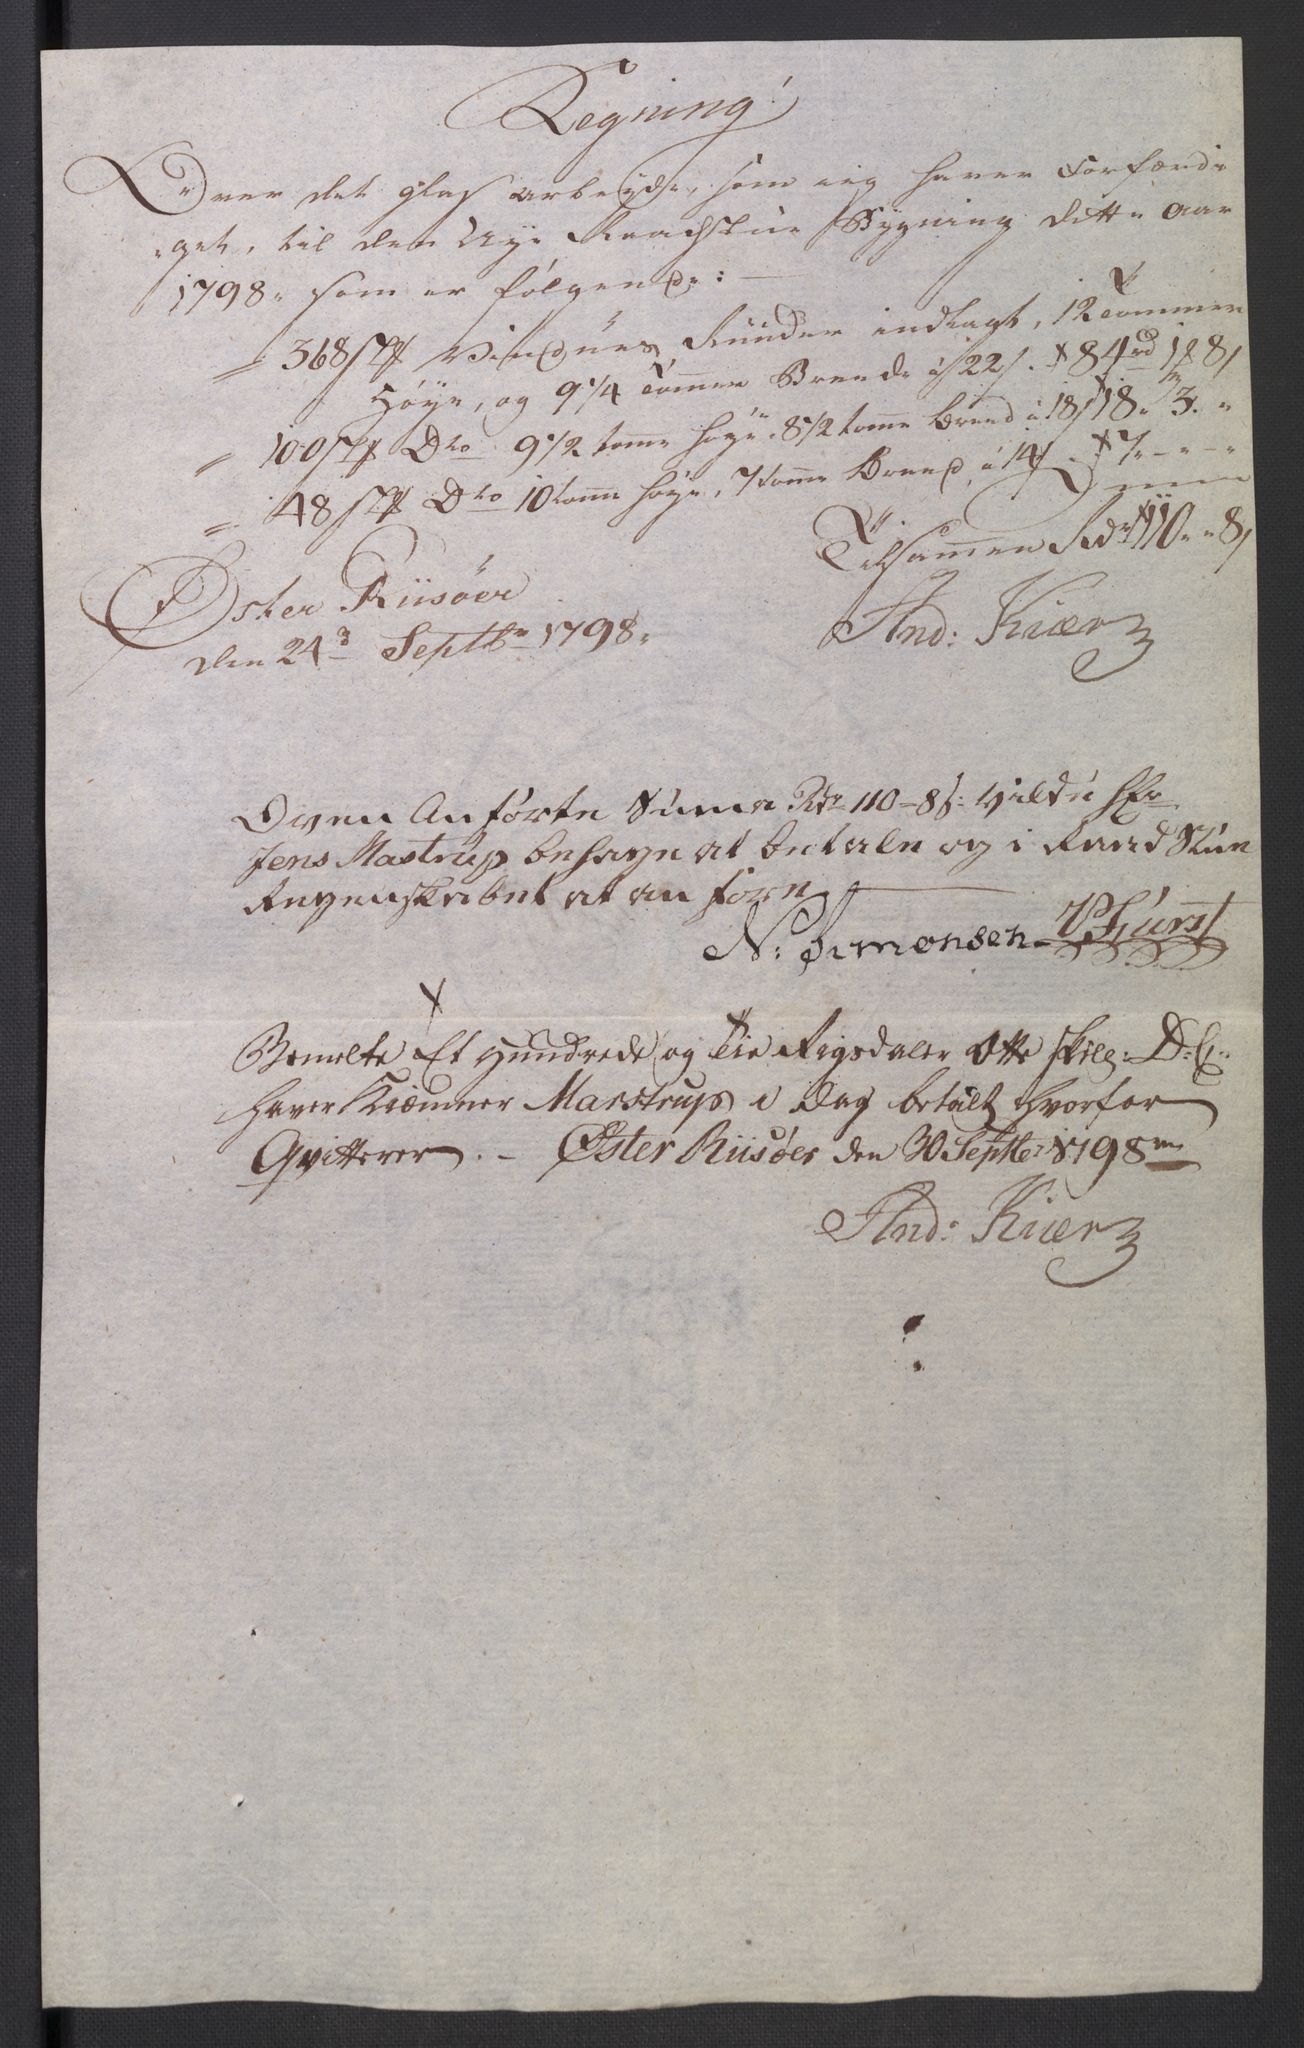 Regning!
Over det glas arbeyde, som ieg haver Forfærdi-
get, til den Nye Raadstue Bygning dette Aar
1798, som er følgende:
368 stk Vindues Rüüder indlagt, 12 Tommer
Høye, og 9 1/4 Tommer Breede á 22 s. 84 rd 1 8 s
100 stk Dto 9 1/2 tomme høye, 8 1/2 tomme breed á 18 s 18 " 3 "
48 stk Dto 10 tomme høye, 7 tomme Breed, á 14 s 7 " - " -
Tilsamen Rdr 110 " " 8 s
Øster Riisøer
den 24de Septbr 1798.
And: Kiær
Oven Anførte Suma Rdr 110 - 8 s: vilde Hr
Jens Mastrup behage at betale og i Raad Stue
Regenskabet at an føre
N: Simonsen
Bemelte Et Hundrede og Tie Rigsdaler Otte skill: D: C:
haver Kiæmner Marstrup i Dag betalt hvorfor
Qvitterer. - Øster Riisøer den 30 Septbr 1798
And: Kiær